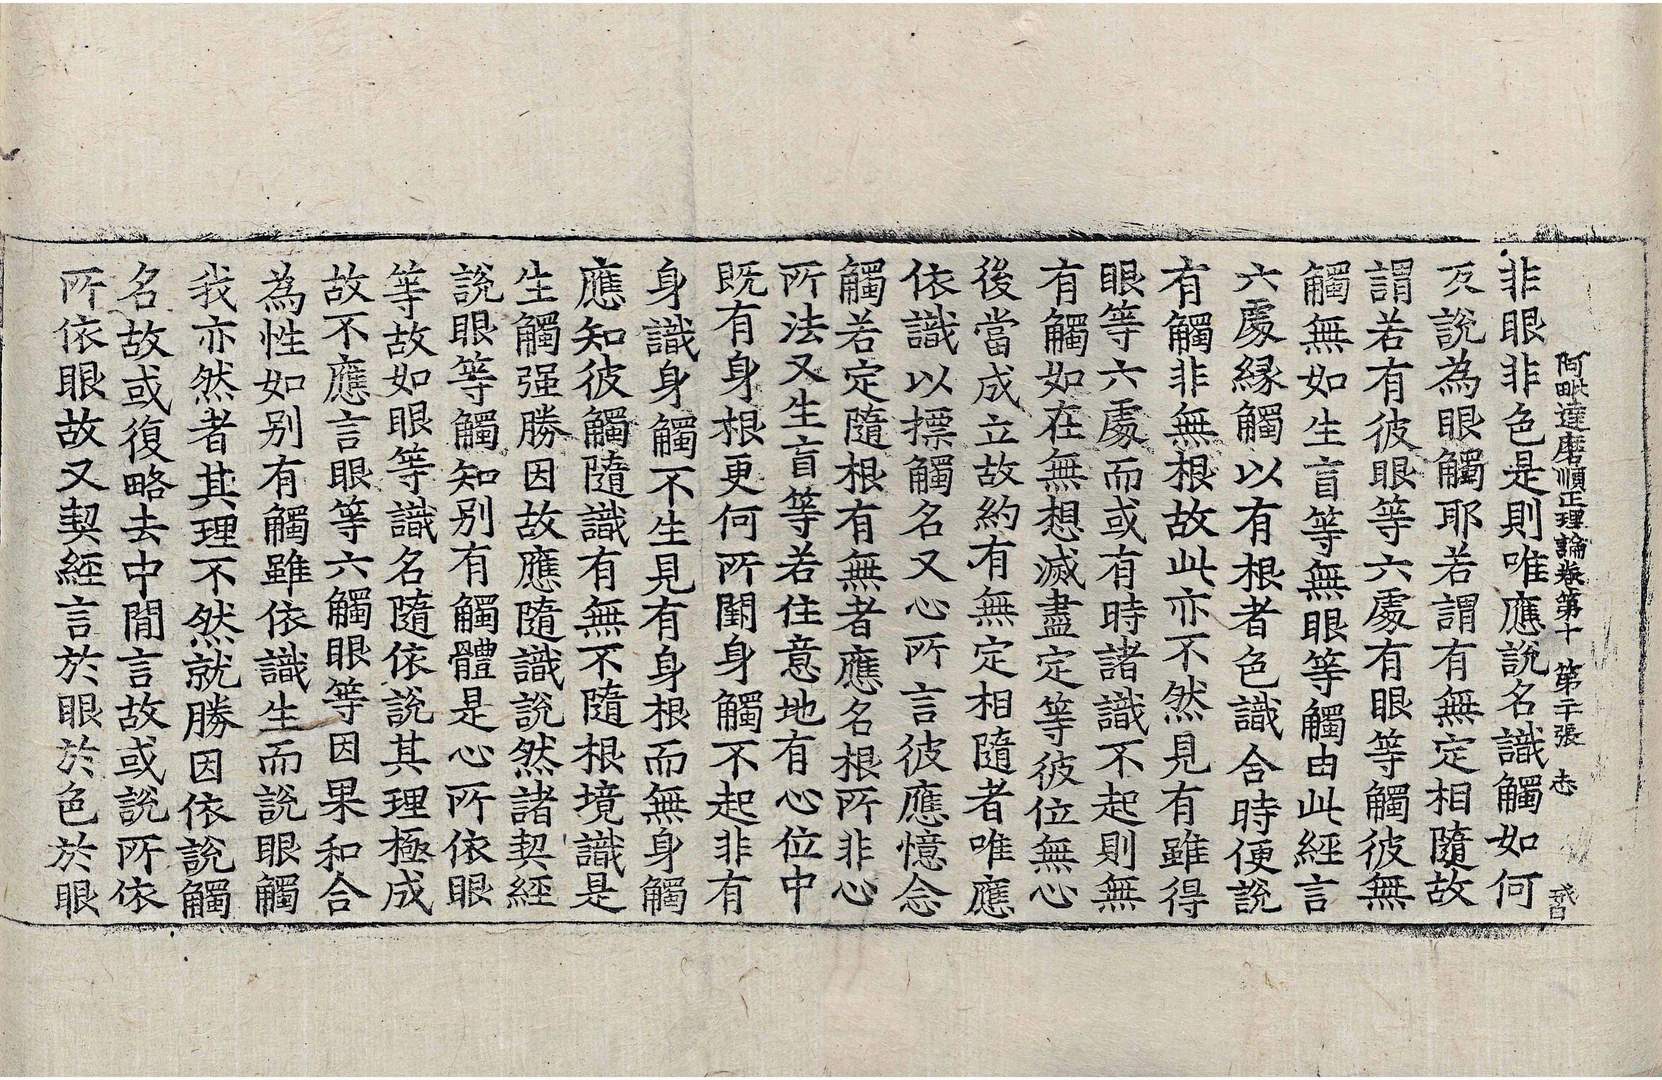 阿毗達磨順正理論卷第十 第二十張 志
非眼非色是則唯應說名識觸如何
及說為眼觸耶若謂有無定相隨故
謂若有彼眼等六處有眼等觸彼無
觸無如生盲等無眼等觸由此經言
六處緣觸以有根者色識合時便說
有觸非無根故此亦不然見有雖得
眼等六處而或有時諸識不起則無
有觸如在無想滅盡定等彼位無心
後當成立故約有無定相隨者唯應
依識以摽觸名又心所言彼應憶念
觸若定隨根有無者應名根所非心
所法又生盲等若住意地有心位中
既有身根更何所闕身觸不起非有
身識身觸不生見有身根而無身觸
應知彼觸隨識有無不隨根境識是
生觸强勝因故應隨識說然諸契經
說眼等觸知別有觸體是心所依眼
等故如眼等識名隨依說其理極成
故不應言眼等六觸眼等因果和合
為性如別有觸雖依識生而說眼觸
我亦然者其理不然就勝因依說觸
名故或復略去中間言故或說所依
所依眼故又契經言於眼於色於眼